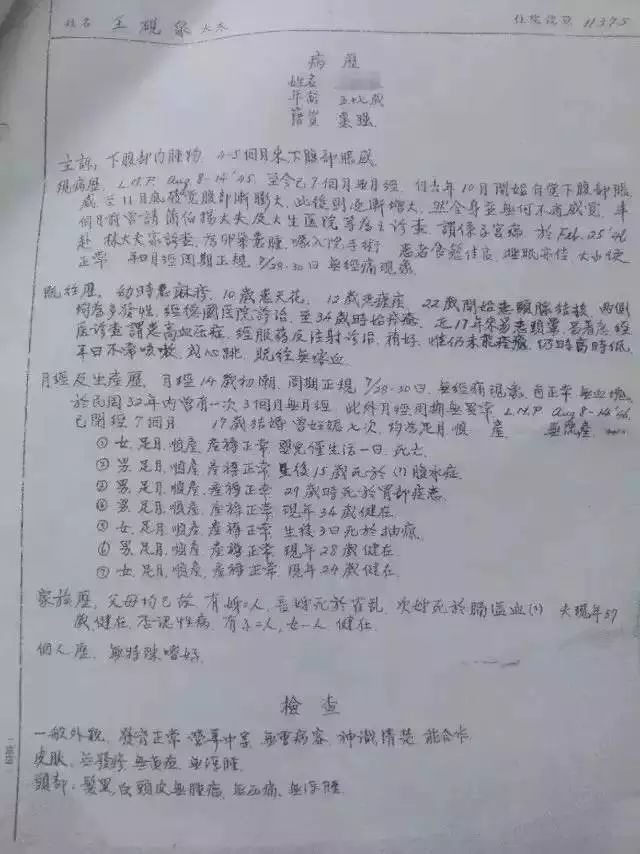 姓名 王硯泉太太 住院號數 11375
病歷
姓名
年齡 五十七歲
籍貫 棗强
主訴, 下腹部內腫物 4-5個月來下腹部脹感
現病歷, L.M.P. Aug 8-14 '45, 至今已7個月無月經, 自去年10月開始自覺下腹部脹
感 至11月底發覺腹部漸膨大, 此後則逐漸增大, 然全身並無何不適感覺, 本
大夫及大生医院等處 診查, 謂係子宮瘤, 於Feb. 25 '46
赴 林大夫家診查, 為卵巢囊腫, 囑入院手術 患者食慾佳良, 睡眠亦佳 大小便
正常 和月經周期正規 7/29-30日 無經痛現象
既往歷, 幼時患麻疹, 10歲患天花, 12歲患瘧疾, 22歲開始患頸腺結核, 兩側
均為多發性, 經德國医院診治, 至34歲時始痊癒, 近17年來當患頭暈
医診查謂患高血压症, 經服藥及注射診治, 稍好, 惟仍未能痊癒, 仍時高時低,
平日不常咳嗽, 或心跳, 既往無嘔血
月經及生產歷, 月經14歲初潮, 周期正規 7/29-30日, 無經痛現象, 色正常, 無血塊,
於民国32年內曾有一次3個月無月經 此外月經周期無異常 L.M.P. Aug 8-14 '45,
已閉經7個月 17歲結婚 曾妊娠七次, 均為足月順產, 無流產
① 女, 足月, 順產, 產褥正常 嬰兒僅生活一日, 死亡
② 男, 足月, 順產, 產褥正常 生後15歲死於(?)腹水症
③ 男, 足月, 順產, 產褥正常 29歲時死於胃部疾患
④ 男, 足月, 順產, 產褥正常 現年34歲健在
⑤ 女, 足月, 順產, 產褥正常 生後3日死於抽瘋
⑥ 男, 足月, 順產, 產褥正常 現年28歲健在
⑦ 女, 足月, 順產, 產褥正常 現年24歲健在
家族歷, 父母均已故 有姊二人, 長姊死於霍乱, 次姊死於腦溢血(?) 夫現年57
歲健在, 否認性病, 有子二人, 女一人 健在,
個人歷, 無特殊嗜好,
檢查
一般外觀, 發育正常 營養中等, 無重病容, 神識清楚, 能合作
皮膚, 無發疹 無黃疸, 無浮腫
頭部: 髮黑白 頭皮無腫瘍, 無压痛, 無浮腫